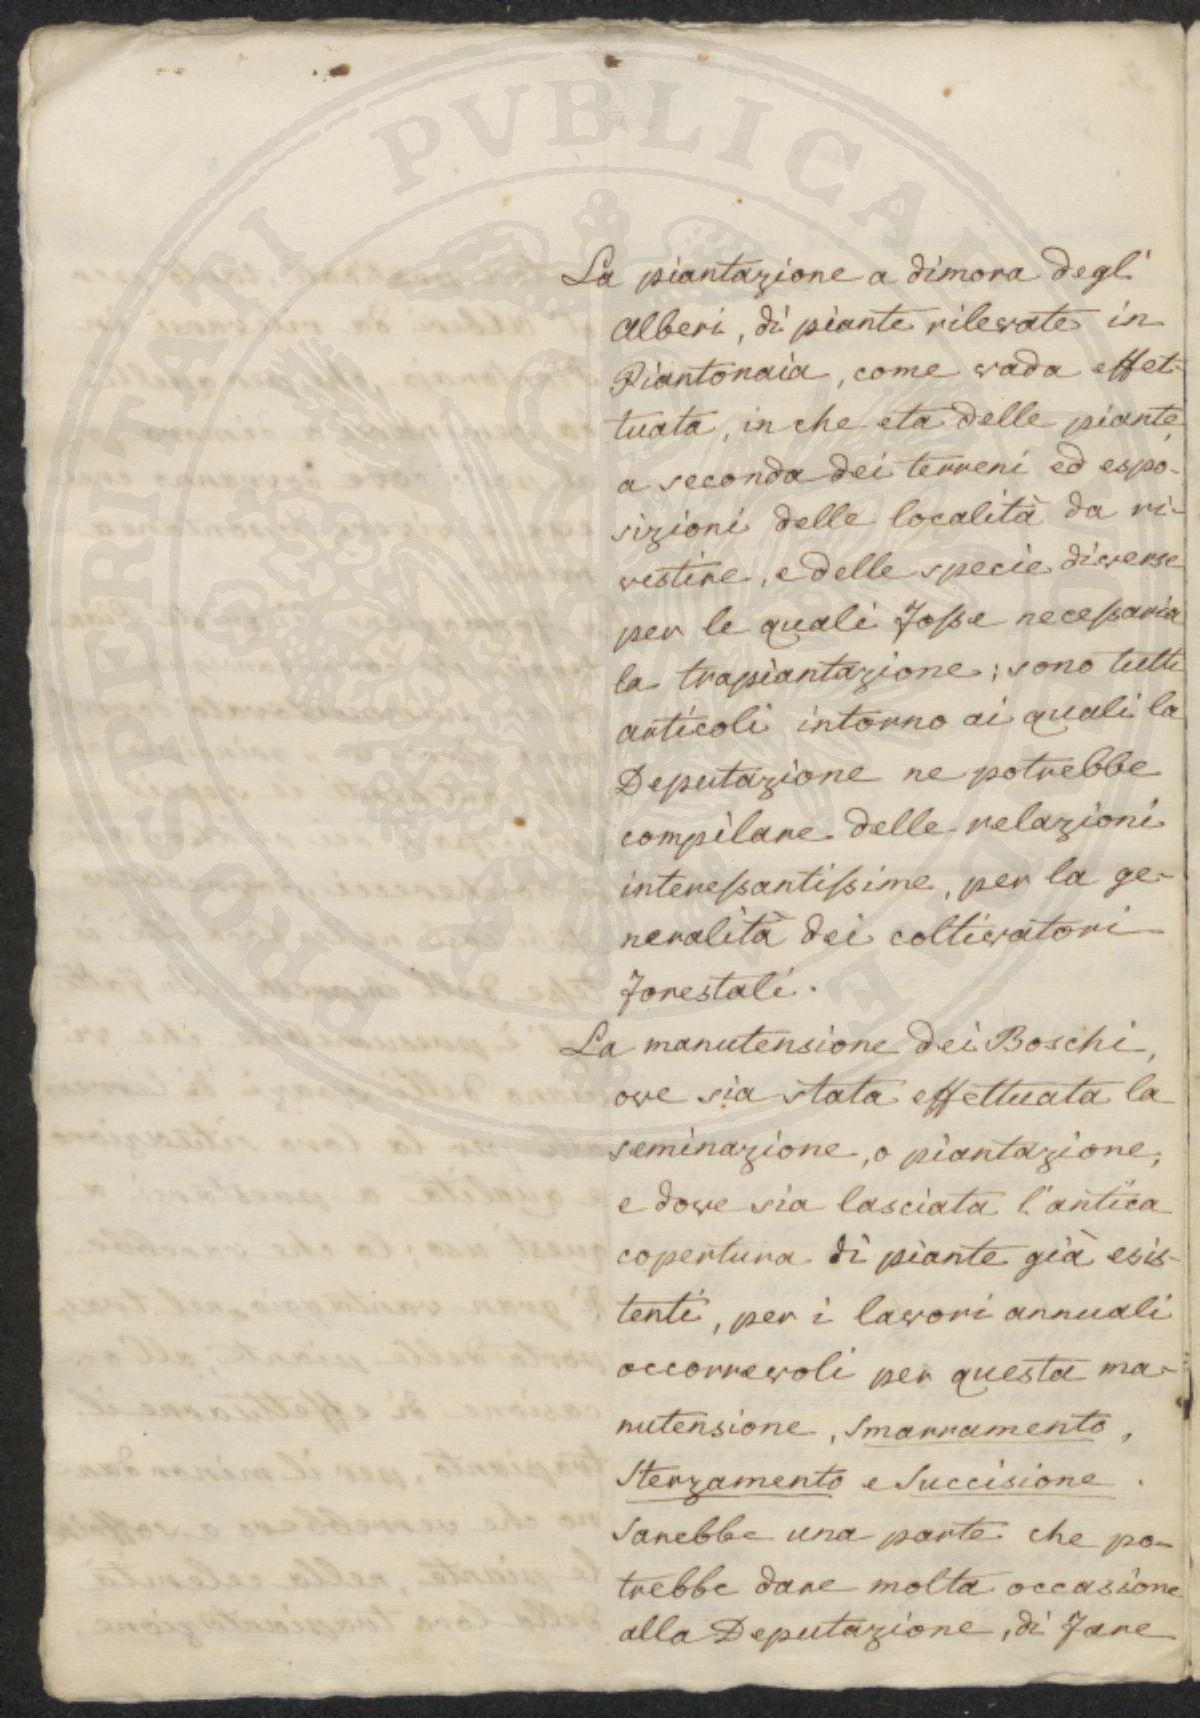 La piantazione a dimora degl'
Alberi, di piante rilevate in
Piantonaia, come vada effet-
tuata, in che eta delle piante,
a seconda dei terreni ed espo-
sizioni delle località da ri-
vestire, e delle specie diverse
per le quali fosse necessaria
la trapiantazione; sono tutti
articoli intorno ai quali la
Deputazione ne potrebbe
compilare delle relazioni
interessantissime, per la ge-
neralità dei coltivatori
forestali.
La manutensione dei Boschi,
ove sia stata effettuata la
seminazione, o piantazione,
e dove sia lasciata l'antica
copertura di piante già esis-
tenti, per i lavori annuali
occorrevoli per questa ma-
nutensione, Smarramento,
Sterzamento e Succisione.
Sarebbe una parte che po-
trebbe dare molta occasione
alla Deputazione, di fare
PROSPERITATI PVBLICAE